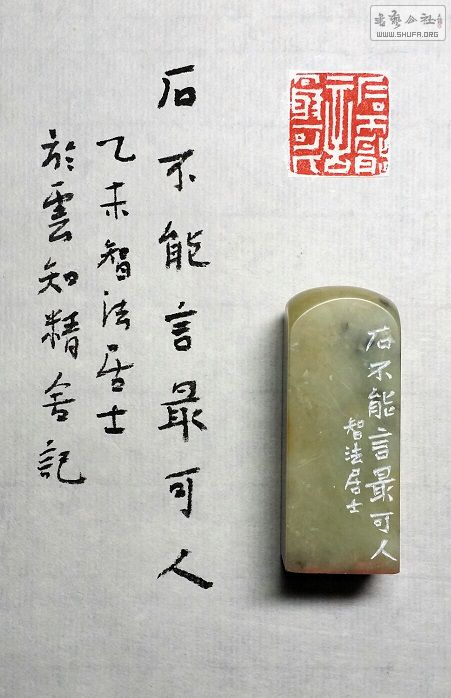 書藝公社
WWW.SHUFA.ORG
石不能言最可人
乙未智法居士
於雲知精舍記
石不能言最可人
石不能言最可人
智法居士